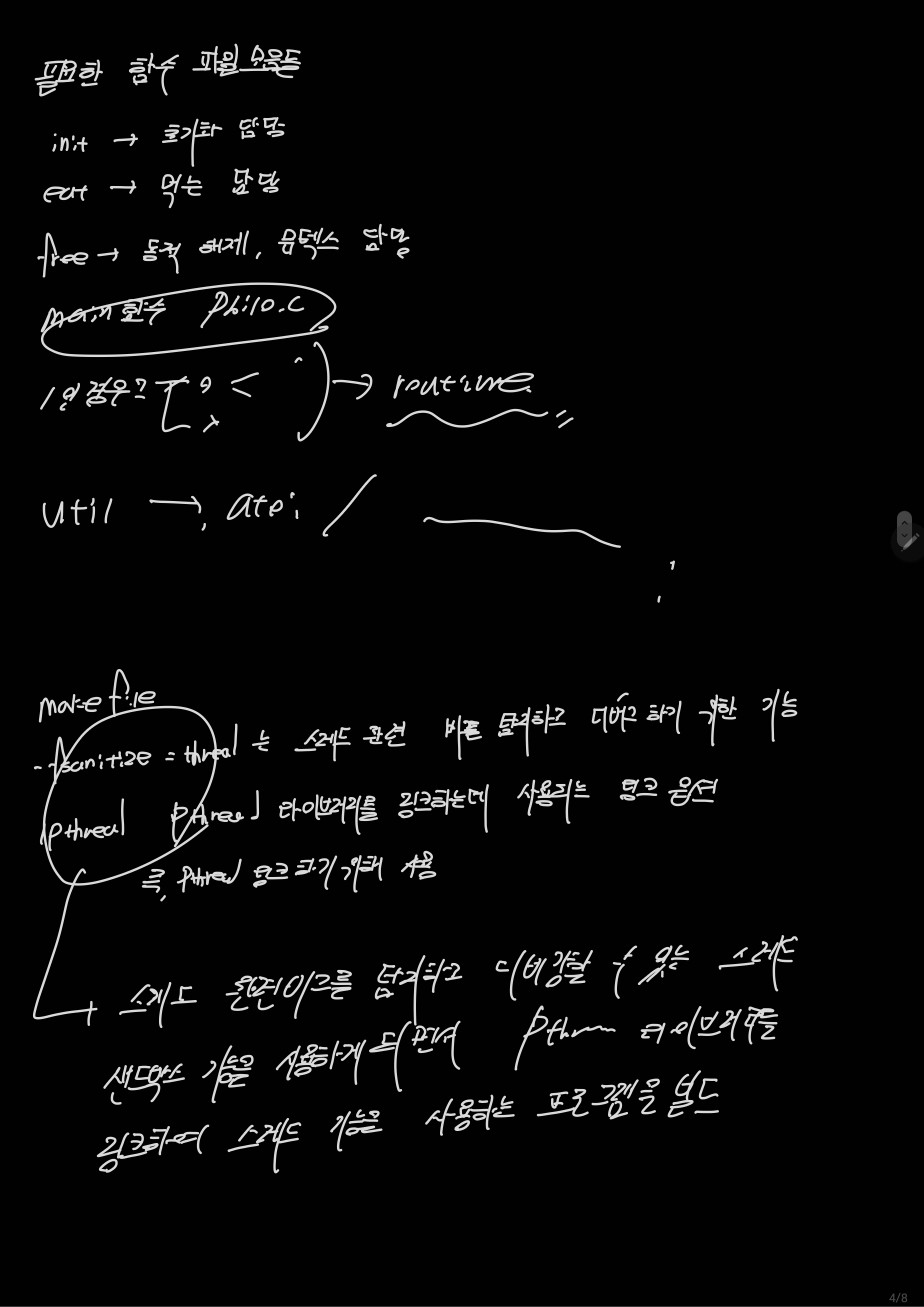 필요한 함수 파일 목록들
init → 초기화 담당
eat → 먹는 담당
free → 동적 해제, 뮤텍스 담당
main 함수 philo.c
1인 경우? → routine
util → atoi
makefile
-fsanitize = thread 는 스레드 관련 버그를 탐지하고 디버그 하기 위한 기능
lpthread pthread 라이브러리를 링크하는데 사용되는 링크 옵션
즉, pthread 링크 하기 위해 사용
스레드 탐지하고 디버깅할 수 있는 스레드
샌드박스 기능을 사용하게 되면서 라이브러리를
링크하여 스레드 기능을 사용하는 프로그램을 빌드
4/8